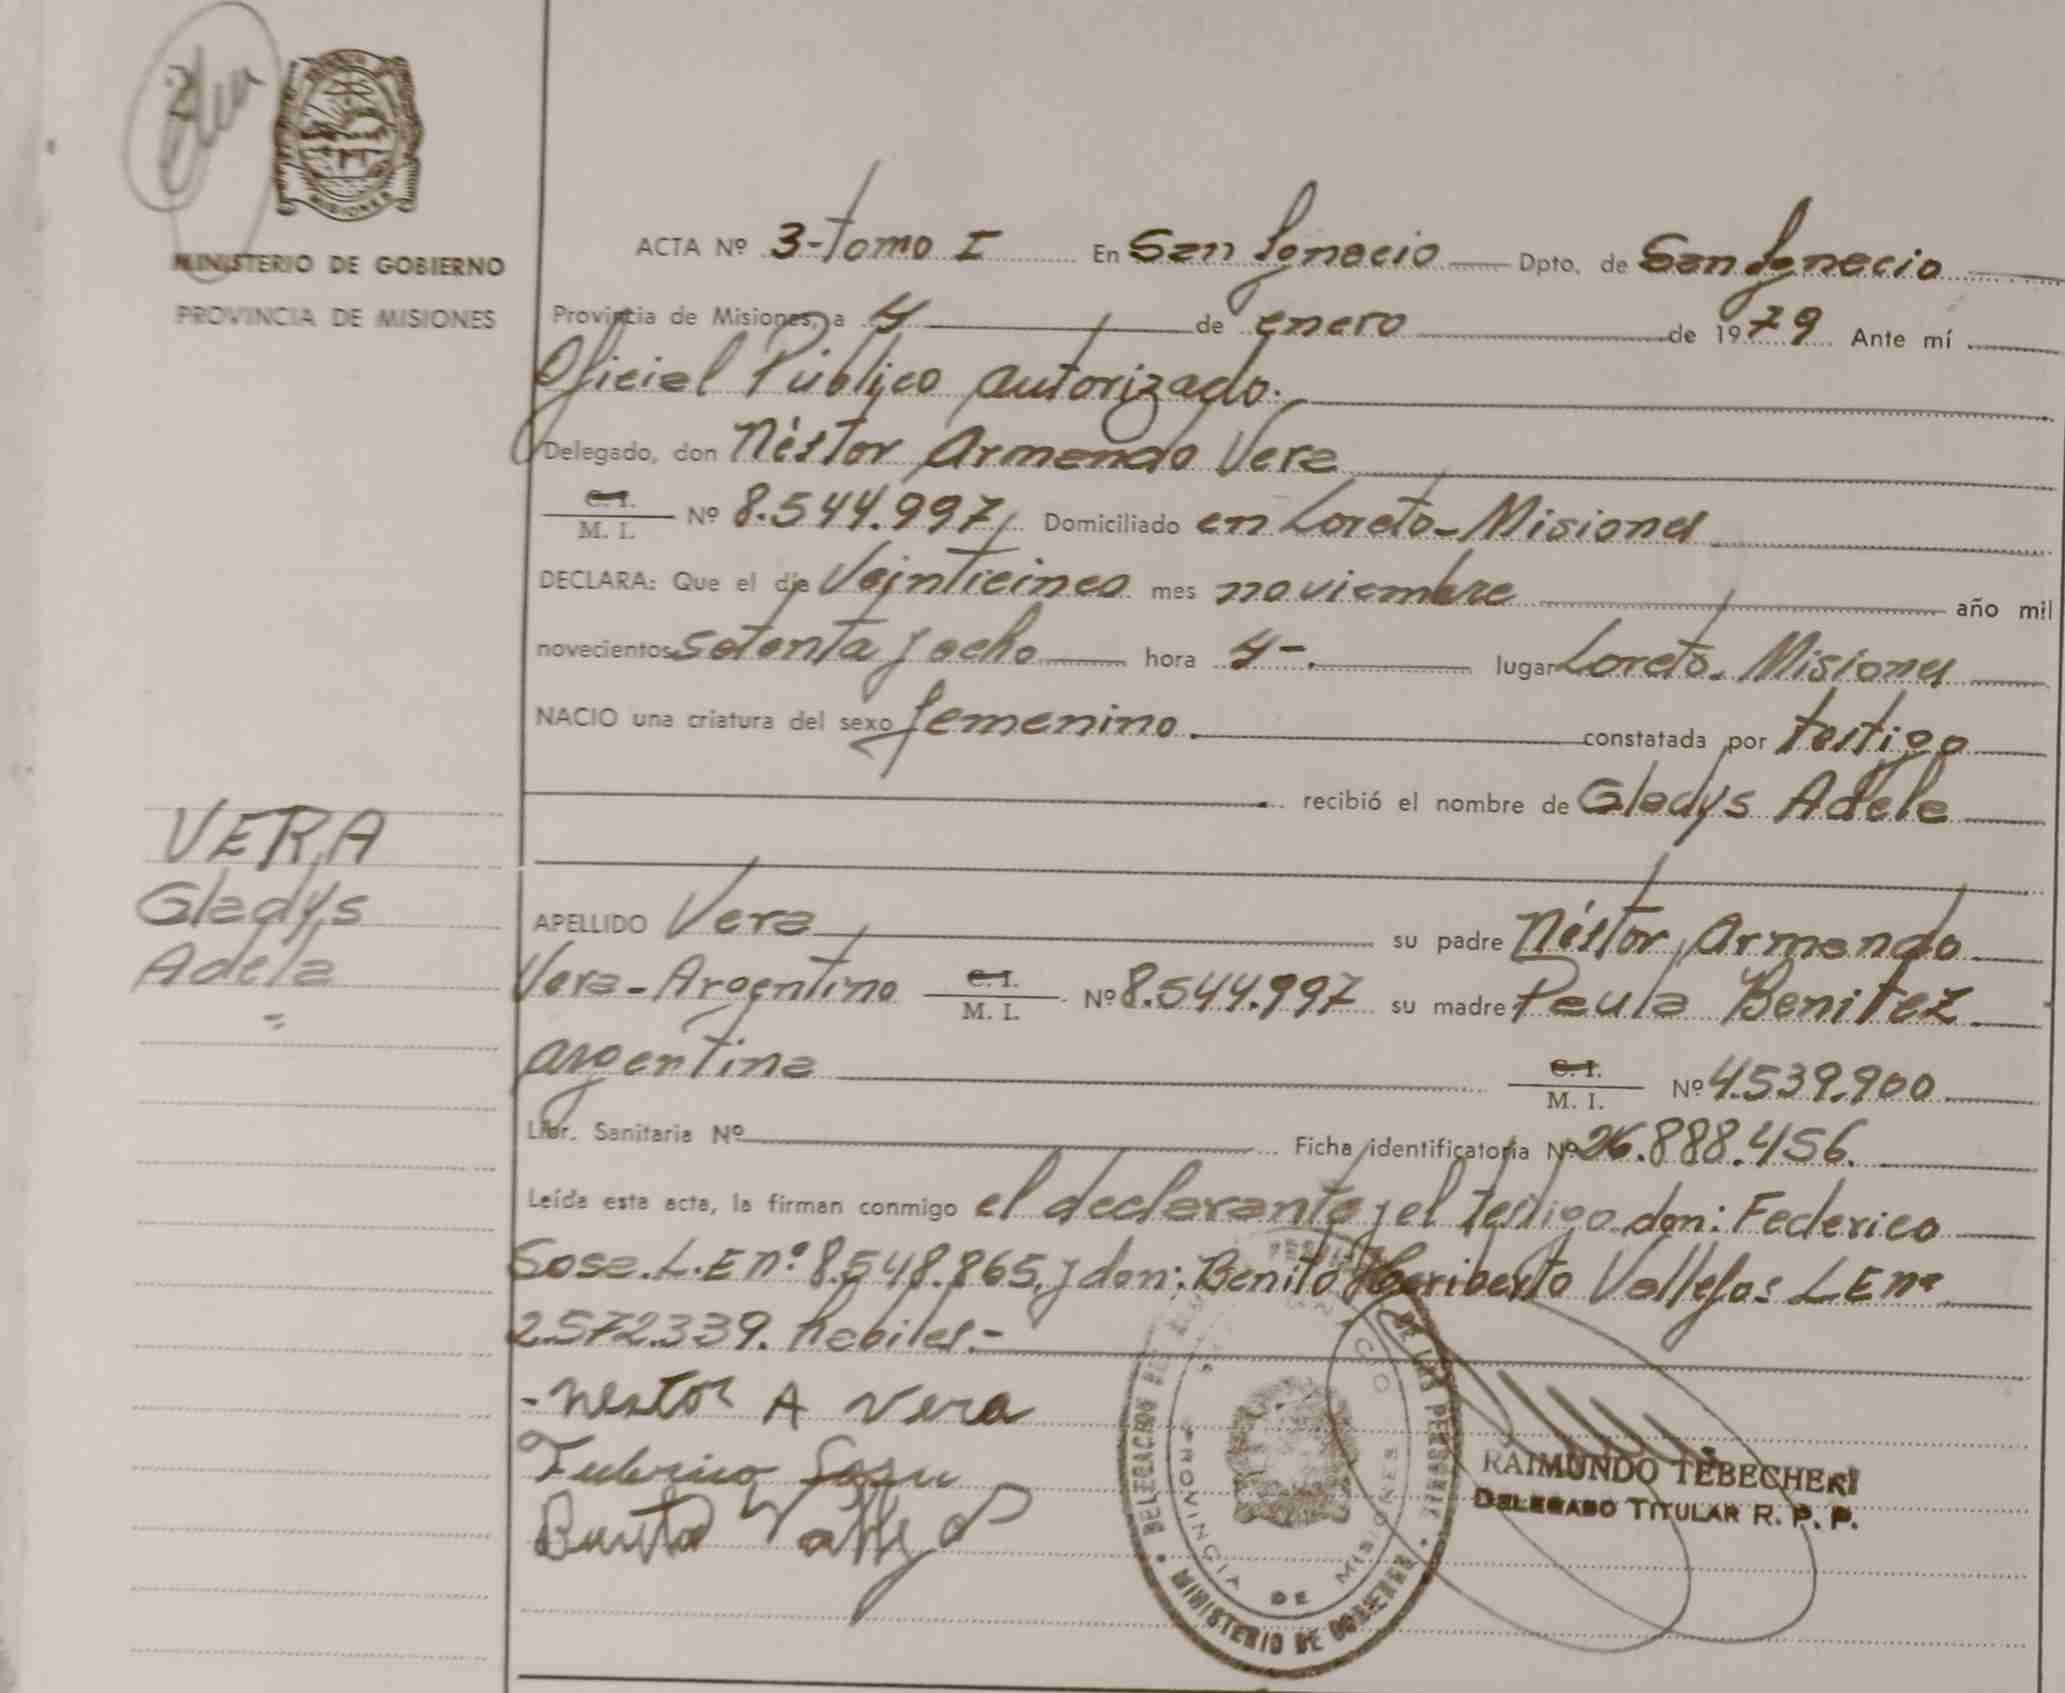 MISIONES
MINISTERIO DE GOBIERNO
PROVINCIA DE MISIONES
ACTA Nº 3-tomo I En San Ignacio Dpto. de San Ignacio
Provincia de Misiones, a 4 de enero de 1979 Ante mí
Oficial Público autorizado.
Delegado, don Néstor Armando Vera
C. I. / M. I. Nº 8.544.997, Domiciliado en Loreto-Misiones
DECLARA: Que el día Veinticinco mes noviembre año mil
novecientos setenta y ocho hora 4-. lugar Loreto. Misiones
NACIO una criatura del sexo femenino. constatada por testigo
recibió el nombre de Gladys Adela
VERA
Gladys
Adela
APELLIDO Vera su padre Néstor Armando
Vera-Argentino C. I. / M. I. Nº 8.544.997 su madre Paula Benitez
argentina C. I. / M. I. Nº 4.539.900
Libr. Sanitaria Nº Ficha identificatoria Nº 26.888.456.
Leída esta acta, la firman conmigo el declarante y el testigo don: Federico
Sosa. L.E nº 8.548.865. y don: Benito Heriberto Vallejos L E nº
2.572.339. habiles.-
-Nestor A Vera
Federico Sosa
Benito Vallejos
RAIMUNDO TEBECHERI
DELEGADO TITULAR R. P. P.
DELEGACION DE LAS PERSONAS
PROVINCIA DE MISIONES
MINISTERIO DE GOBIERNO